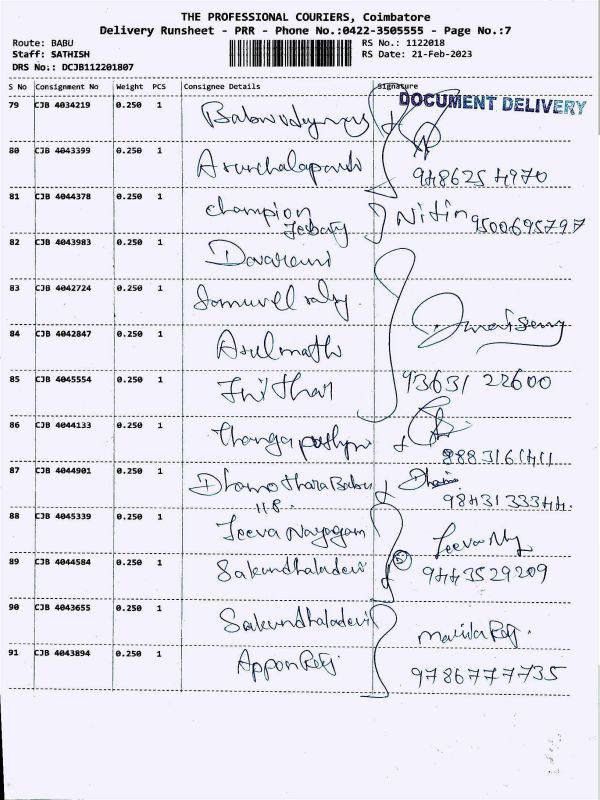 THE PROFESSIONAL COURIERS, Coimbatore
Delivery Runsheet - PRR - Phone No.:0422-3505555 - Page No.:7
Route: BABU
RS No.: 1122018
Staff: SATHISH
RS Date: 21-Feb-2023
DRS No.: DCJB112201807
S No Consignment No Weight PCS Consignee Details Signature
DOCUMENT DELIVERY
79 CJB 4034219 0.250 1
80 CJB 4043399 0.250 1
9486254970
81 CJB 4044378 0.250 1 Champion Nitin
9500695797
82 CJB 4043983 0.250 1
83 CJB 4042724 0.250 1
84 CJB 4042847 0.250 1 Arulmathi
85 CJB 4045554 0.250 1 93631 22600
86 CJB 4044133 0.250 1
8883161411
87 CJB 4044901 0.250 1 Dhamothara Babu
118. 9843133344.
88 CJB 4045339 0.250 1 Jeeva Nayagam
89 CJB 4044584 0.250 1 Sakundhaladevi 9443529209
90 CJB 4043655 0.250 1 Sakundhaladevi
91 CJB 4043894 0.250 1 9786777735